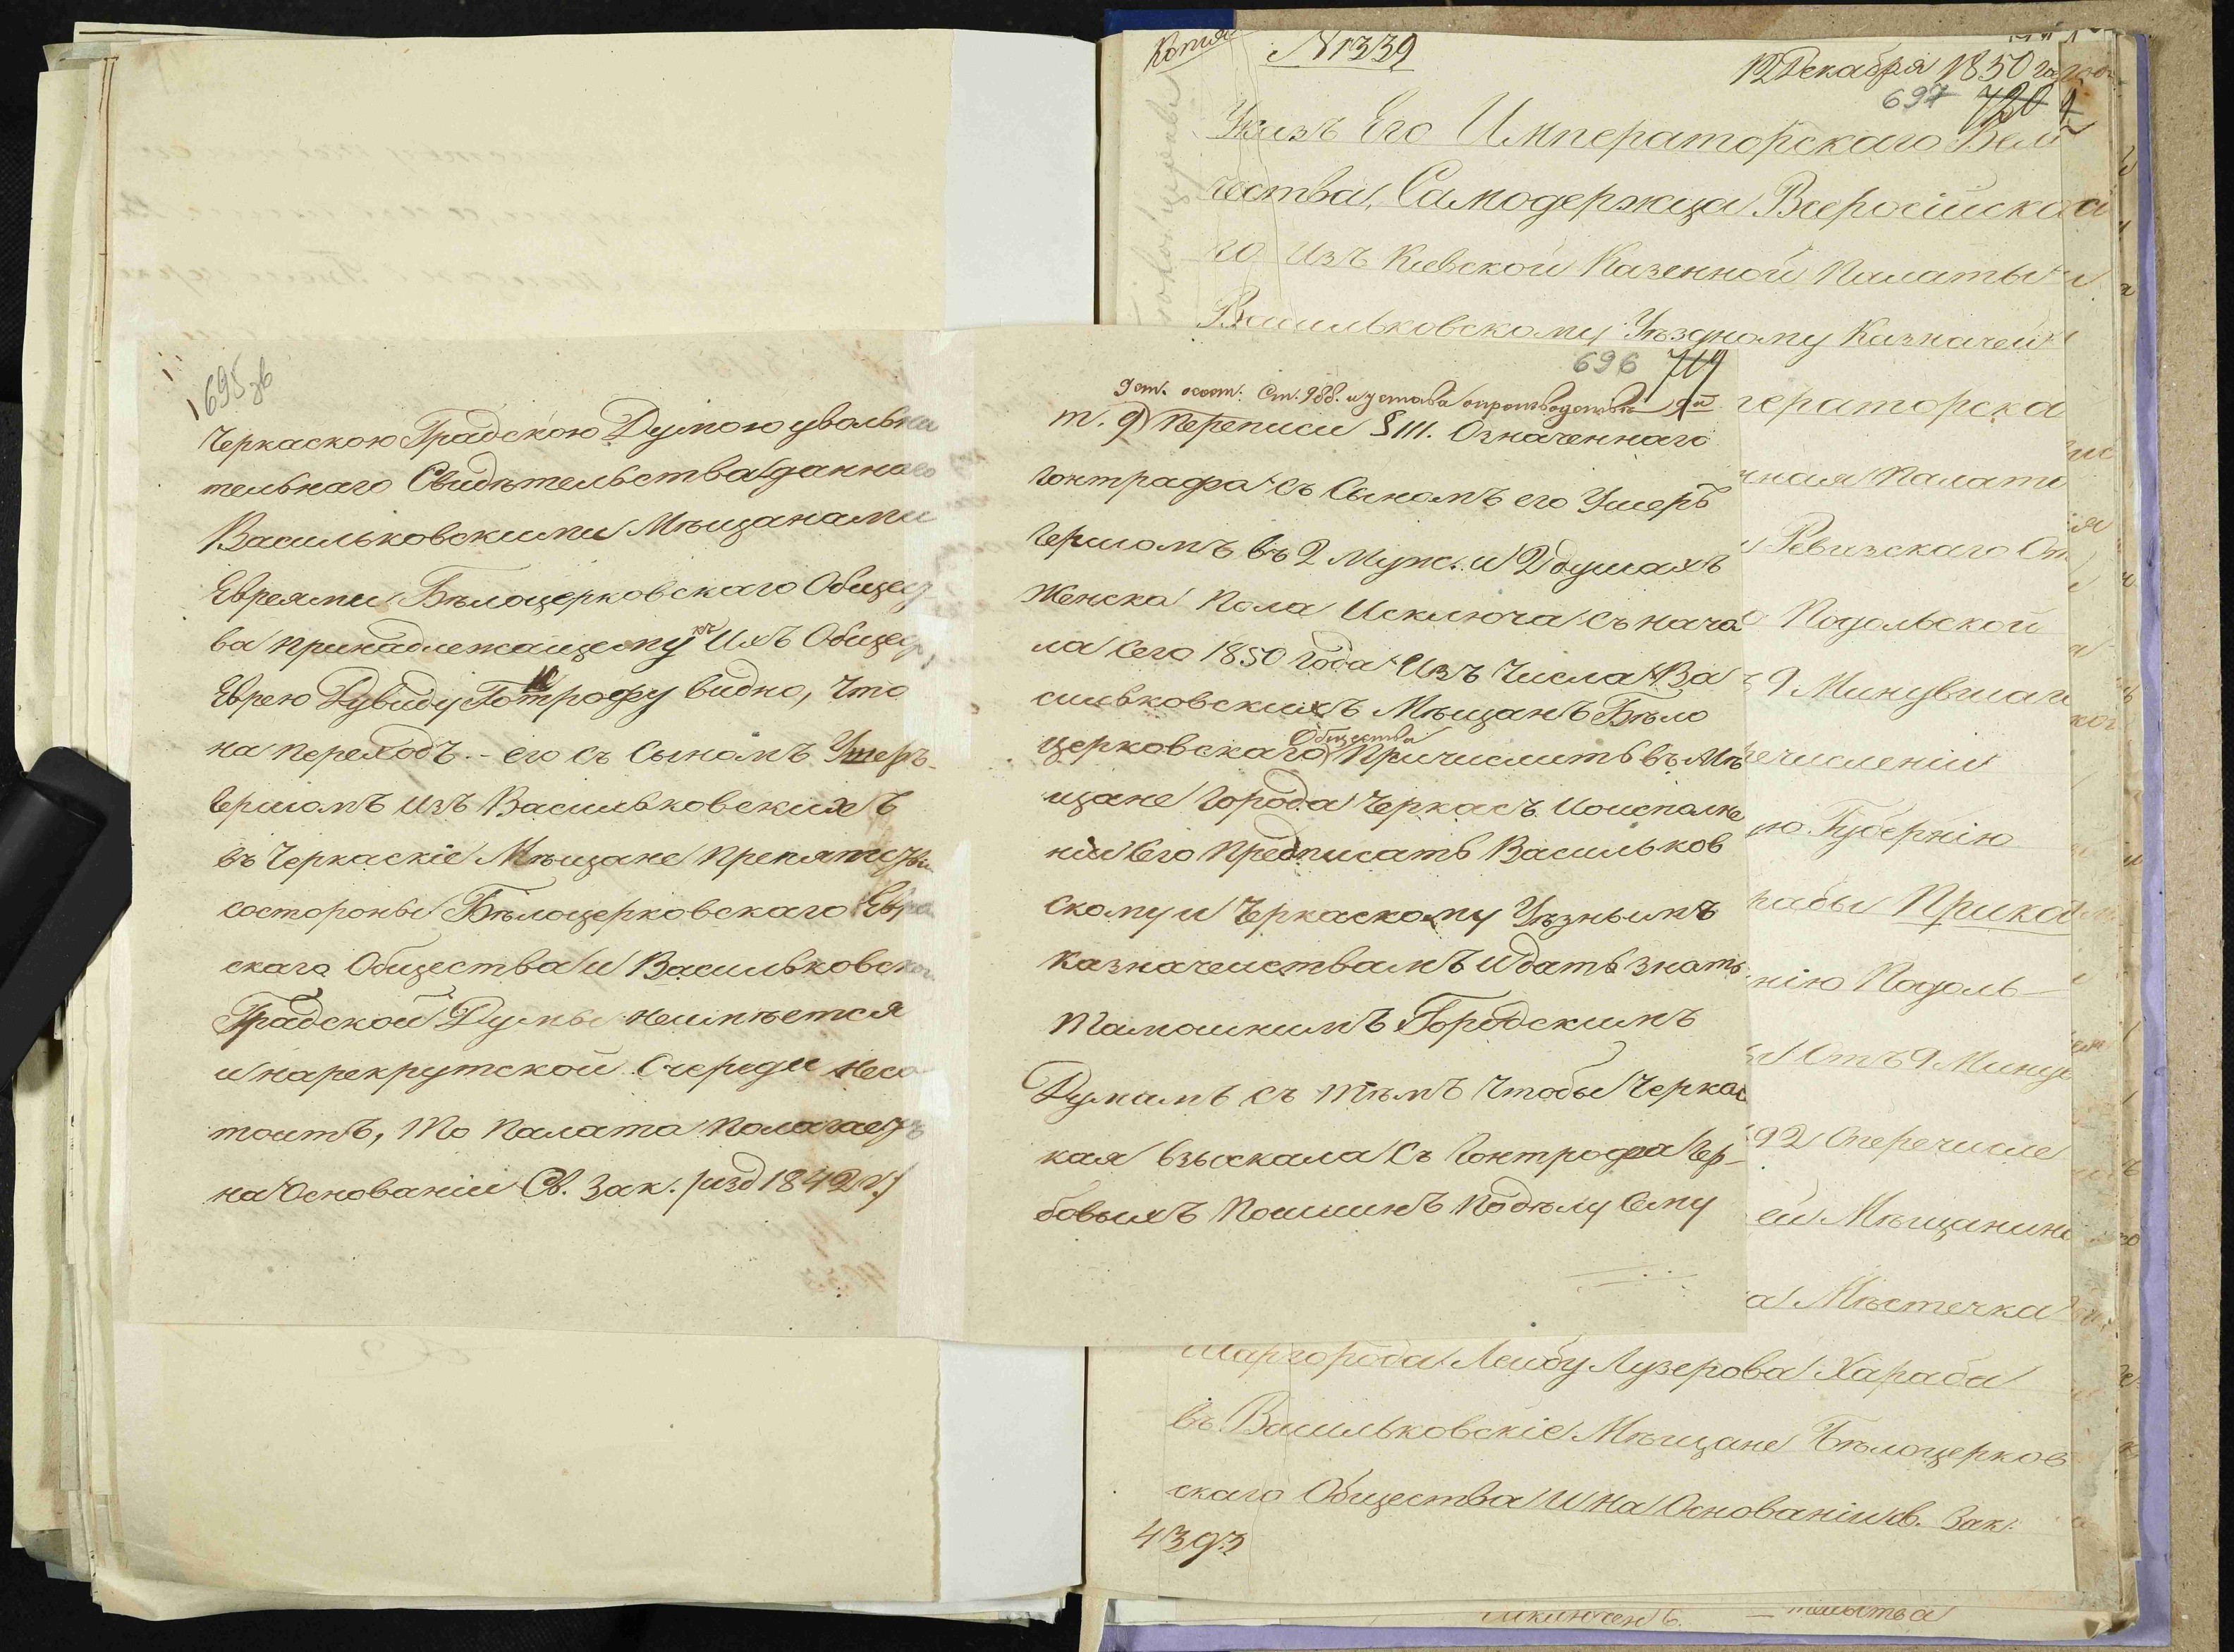 695 зв
Черкаскою Градскою Думою увольни
тельнаго Свидѣтельства данного
Васильковскими Мѣщанами
Евреями Бѣлоцерковскаго Общест
ва принадлежащему къ ихъ Общест
Еврею Дувиду Гонтрофу видно, что
на переходъ его съ Сыномъ Ушеръ-
Гершомъ изъ Васильковскихъ
въ Черкаскіе Мѣщане препятстви
состороны Бѣлоцерковскаго Евре
скаго Общества и Васильковской
Градской Думы неимѣется
и нарекрутской Очереди несо
тоитъ, то Палата Полагаетъ
на Основаніи Св. Зак. /изд 1842 г./
696 719
т. 9 Переписи § 111. Означеннаго
Гонтрафа съ Сыномъ его Ушеръ
Гершомъ въ 2 Муж. и 2 душахъ
Женска Пола Исключа съ нача
ла Сего 1850 года Изъ Числа Ва
сильковскихъ Мѣщанъ Бѣло
церковскаго Общества Причислить въ Мѣ
щане Города Черкасъ Иоисполне
ніи Сего Предписать Васильков
скому и Черкаскому Уѣзнымъ
Казначействамъ И дать знать
Тамошнимъ Городскимъ
Думамъ съ тѣмъ Чтобы Черкас
кая взыскала съ Гонтрофа Гер-
бовыхъ Пошлинъ Подѣлу Сему
Копія
№ 1339
12 Декабря 1850 года
697 720
Указъ Его Императорскаго Вели
чества, Самодержца Всеросійска
го изъ Кіевской Казенной Палаты
Васильковскому Уѣздному Казначей
ператорска
нная Палата
Ревизскаго От
Подольской
9 Минувшаго
речисленіи
ую Губернію
рабы Приказ
нію Подоль-
Отъ 9 Минув
92 Оперечисле
ей Мѣщанина
Мѣстечка
Шаргорода Лейбу Лузерова Хараба
въ Васильковскіе Мѣщане Бѣлоцерков
скаго Общества И На Основаніи Св. Зак.
4393